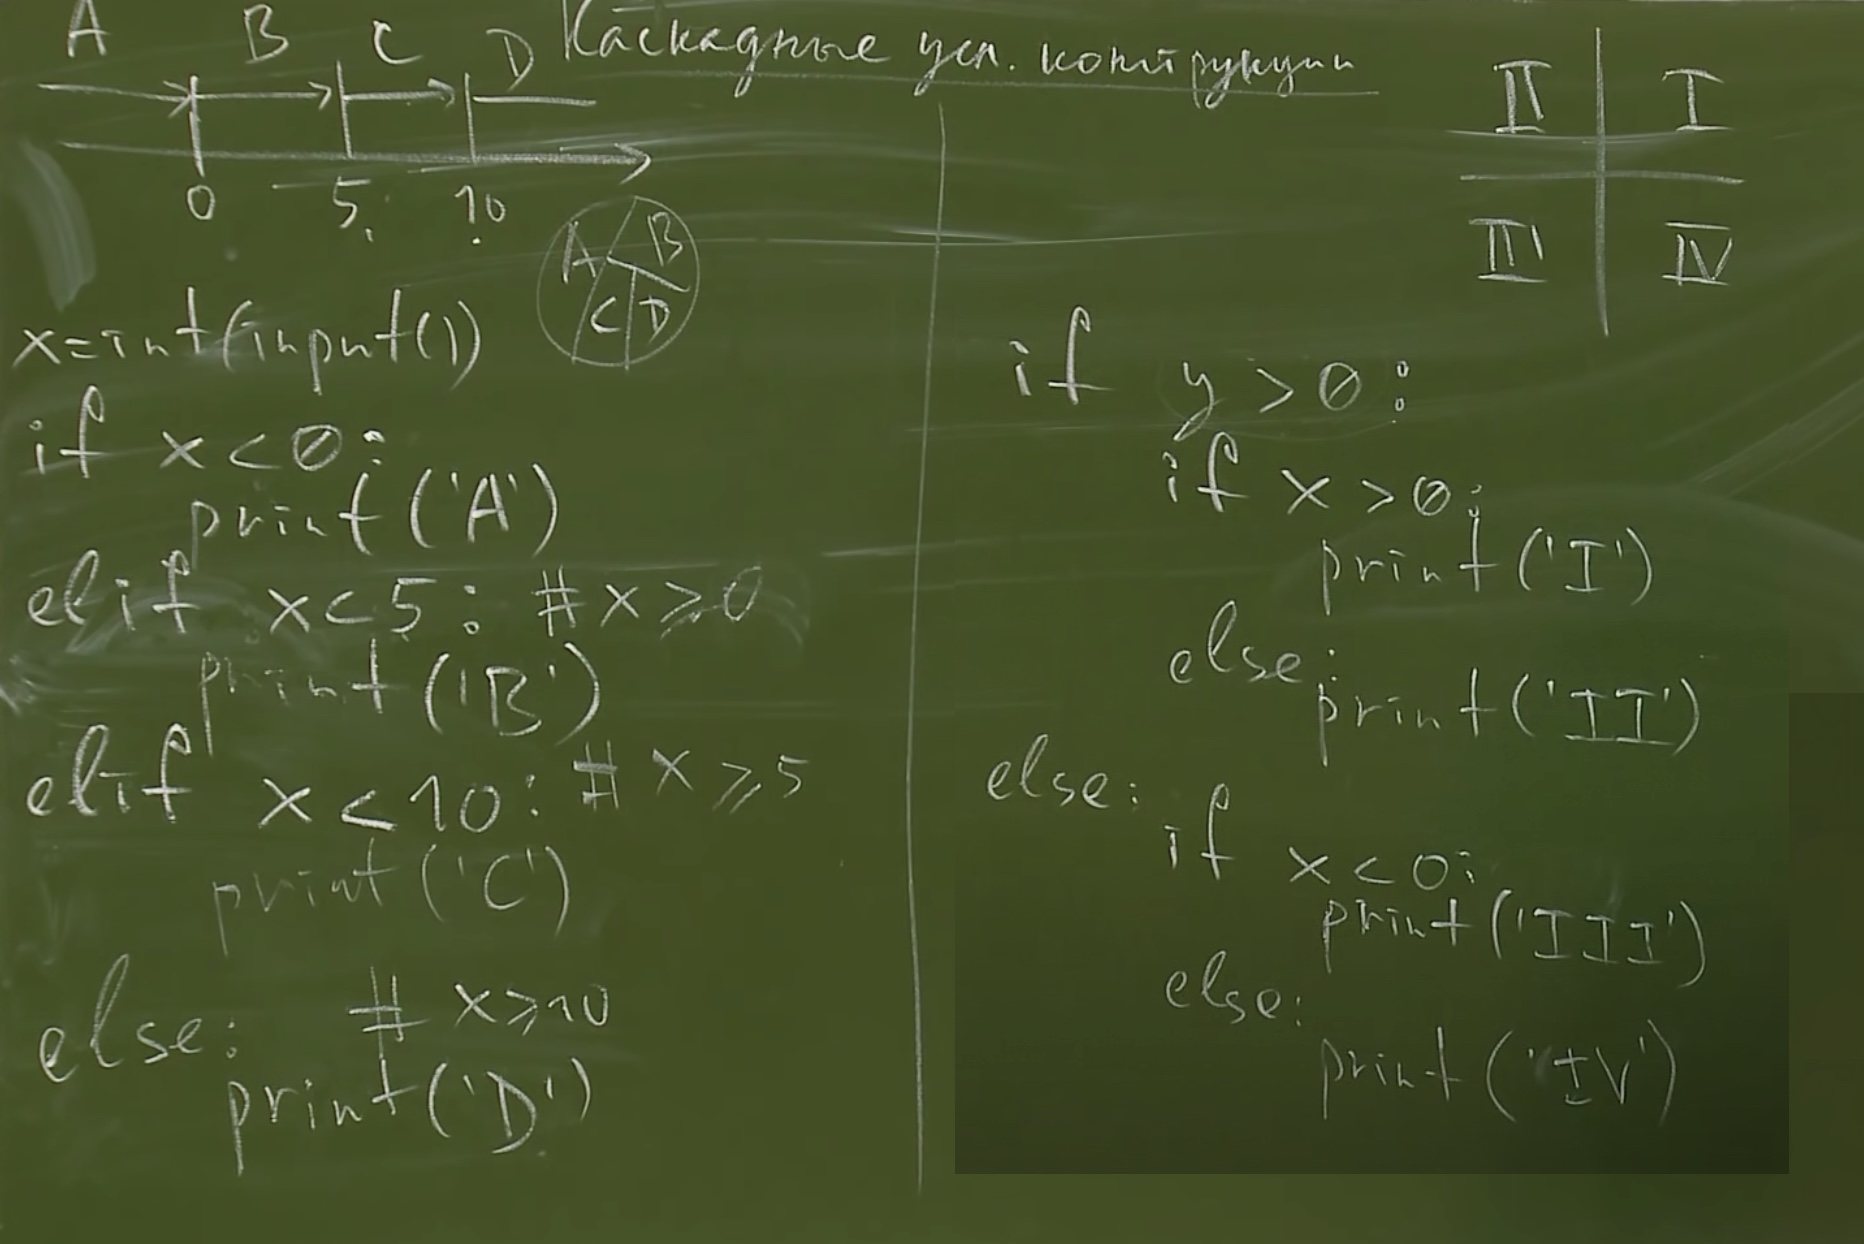 Каскадные усл. конструкции
A B C D
0 5 10
A B
C D
x=int(input())
if x<0:
print('A')
elif x<5: #x⩾0
print('B')
elif x<10: # x⩾5
print('C')
else: # x⩾10
print('D')
II I
III IV
if y>0:
if x>0:
print('I')
else:
print('II')
else:
if x<0:
print('III')
else:
print('IV')